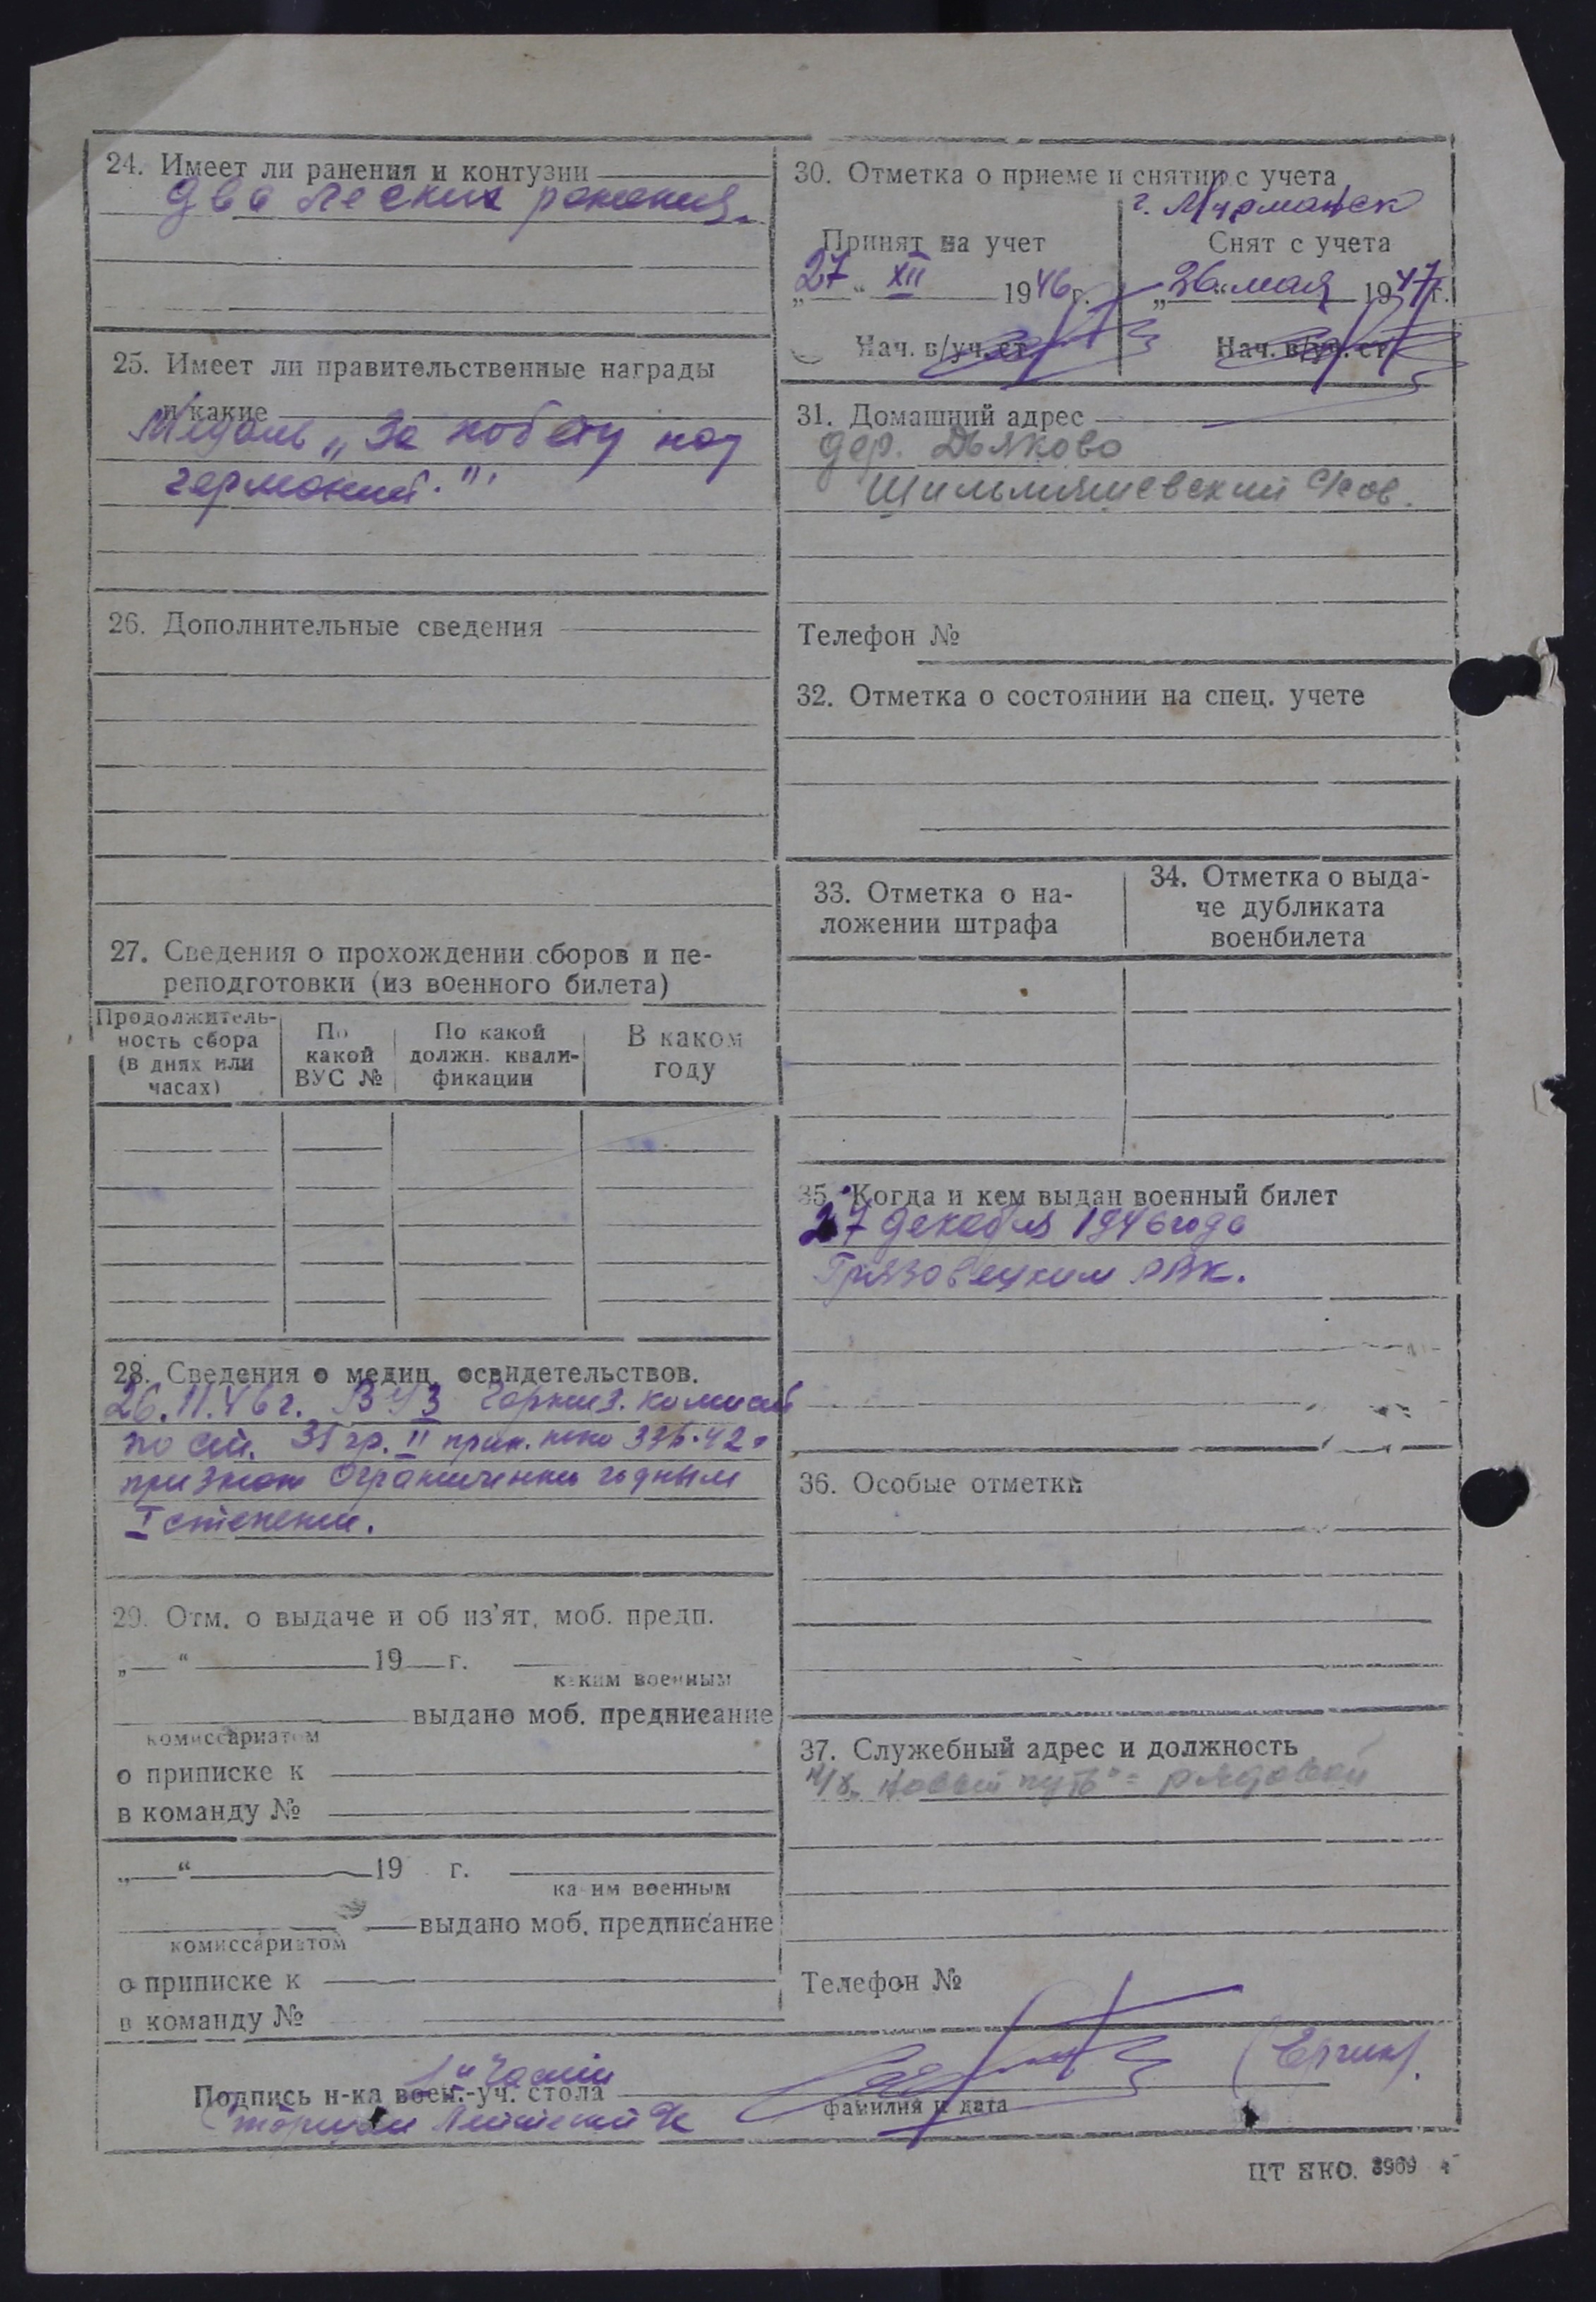 24. Имеет ли ранения и контузии
Два легких ранения.
25. Имеет ли правительственные награды
и какие
Медаль „За победу над
германией."
26. Дополнительные сведения
27. Сведения о прохождении сборов и пе-
реподготовки (из военного билета)
Продолжитель-
ность сбора
(в днях или
часах)
По
какой
ВУС №
По какой
должн. квали-
фикации
В каком
году
28. Сведения о медиц. освидетельствов.
26.11.46 г. гарниз. комиссией
по ст. 31 гр. II прик. нко 336-42 г
признан ограниченно годным
I степени.
29. Отм. о выдаче и об из'ят. моб. предп.
„ “ 19 г.
каким военным
выдано моб. предписание
комиссариатом
о приписке к
в команду №
„ “ 19 г.
каким военным
выдано моб. предписание
комиссариатом
о приписке к
в команду №
30. Отметка о приеме и снятии с учета
г. Мурманск
Принят на учет
„27“ XII 1946 г.
Нач. в/уч. ст
Снят с учета
„26“ мая 1947 г.
Нач. в/уч. ст
31. Домашний адрес
дер. Дьяково
с/сов.
Телефон №
32. Отметка о состоянии на спец. учете
33. Отметка о на-
ложении штрафа
34. Отметка о выда-
че дубликата
военбилета
35. Когда и кем выдан военный билет
27 декабря 1946 года
Грязовецким РВК.
36. Особые отметки
37. Служебный адрес и должность
к/х „Новый путь" = рядовой
Телефон №
части
Подпись н-ка воен.-уч. стола
фамилия и дата
старший лейтенант
ЦТ НКО. 3969